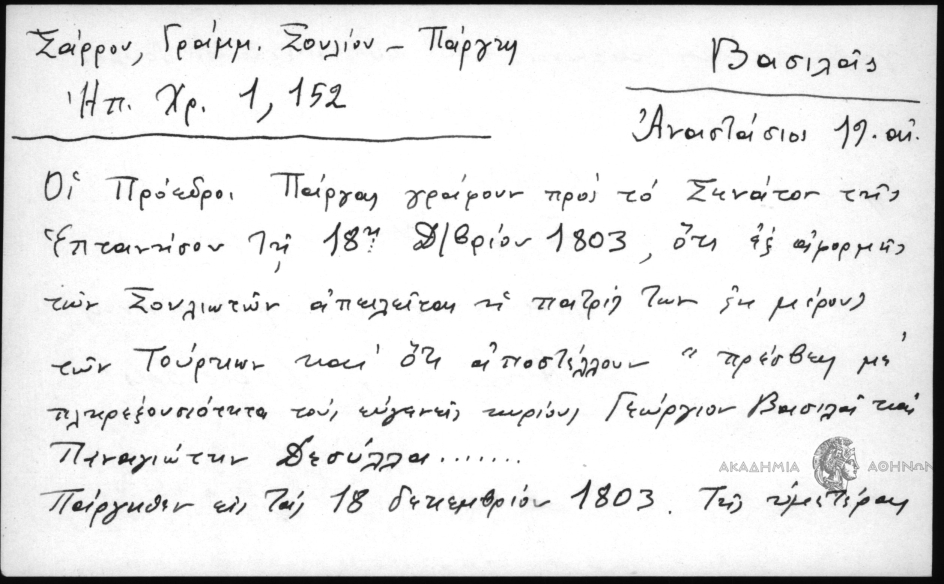 Σάρρου, Γράμμ. Σουλίου - Πάργης
Ἠπ. Χρ. 1, 152
Βασιλᾶς
Ἀναστάσιος 19. αἰ.
Οἱ Πρόεδροι Πάργας γράφουν πρὸς τὸ Σενάτον τῆς
Ἑπτανήσου τῇ 18ῃ Δ/βρίου 1803, ὅτι ἐξ ἀφορμῆς
τῶν Σουλιωτῶν ἀπειλεῖται ἡ πατρίς των ἐκ μέρους
τῶν Τούρκων καὶ ὅτι ἀποστέλλουν " πρέσβεις μὲ
πληρεξουσιότητα τοὺς εὐγενεῖς κυρίους Γεώργιον Βασιλᾶ καὶ
Παναγιώτην Δεσύλλα.......
Πάργηθεν εἰς τὰς 18 δεκεμβρίου 1803. Τῆς ὑμετέρας
ΑΚΑΔΗΜΙΑ ΑΘΗΝΩΝ